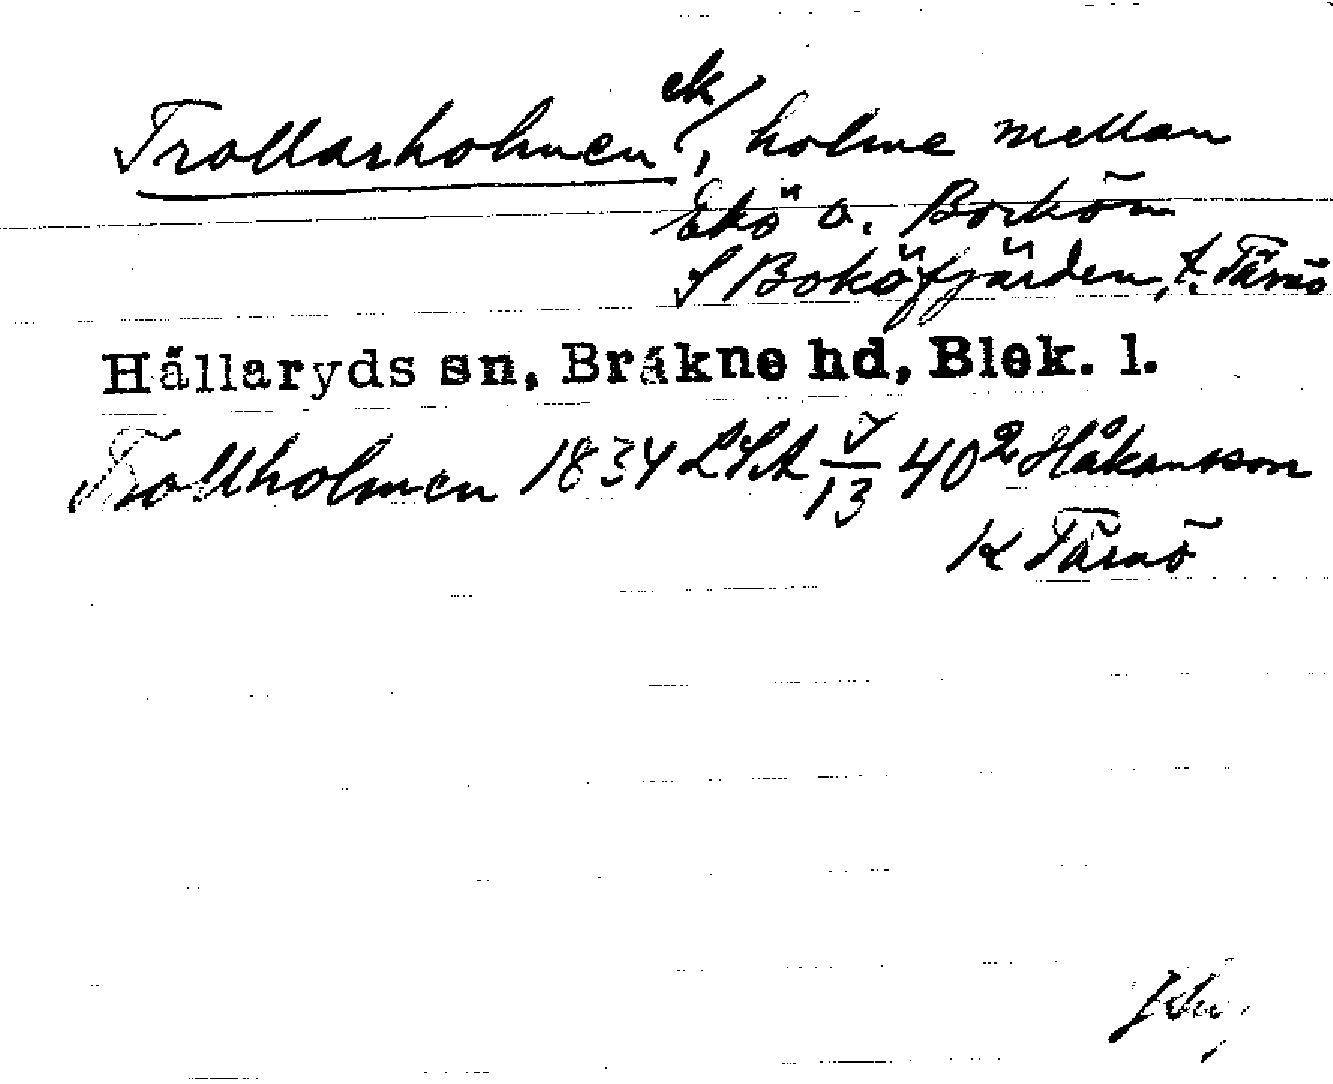 Trollarholmen ek/, holme mellan
Ekö o. Borkön
S Boköfjärden, t. Tärnö
Hällaryds sn, Bräkne hd, Blek. l.
Trollholmen 1834 LSA V/13 40² Håkansson
K Tärnö